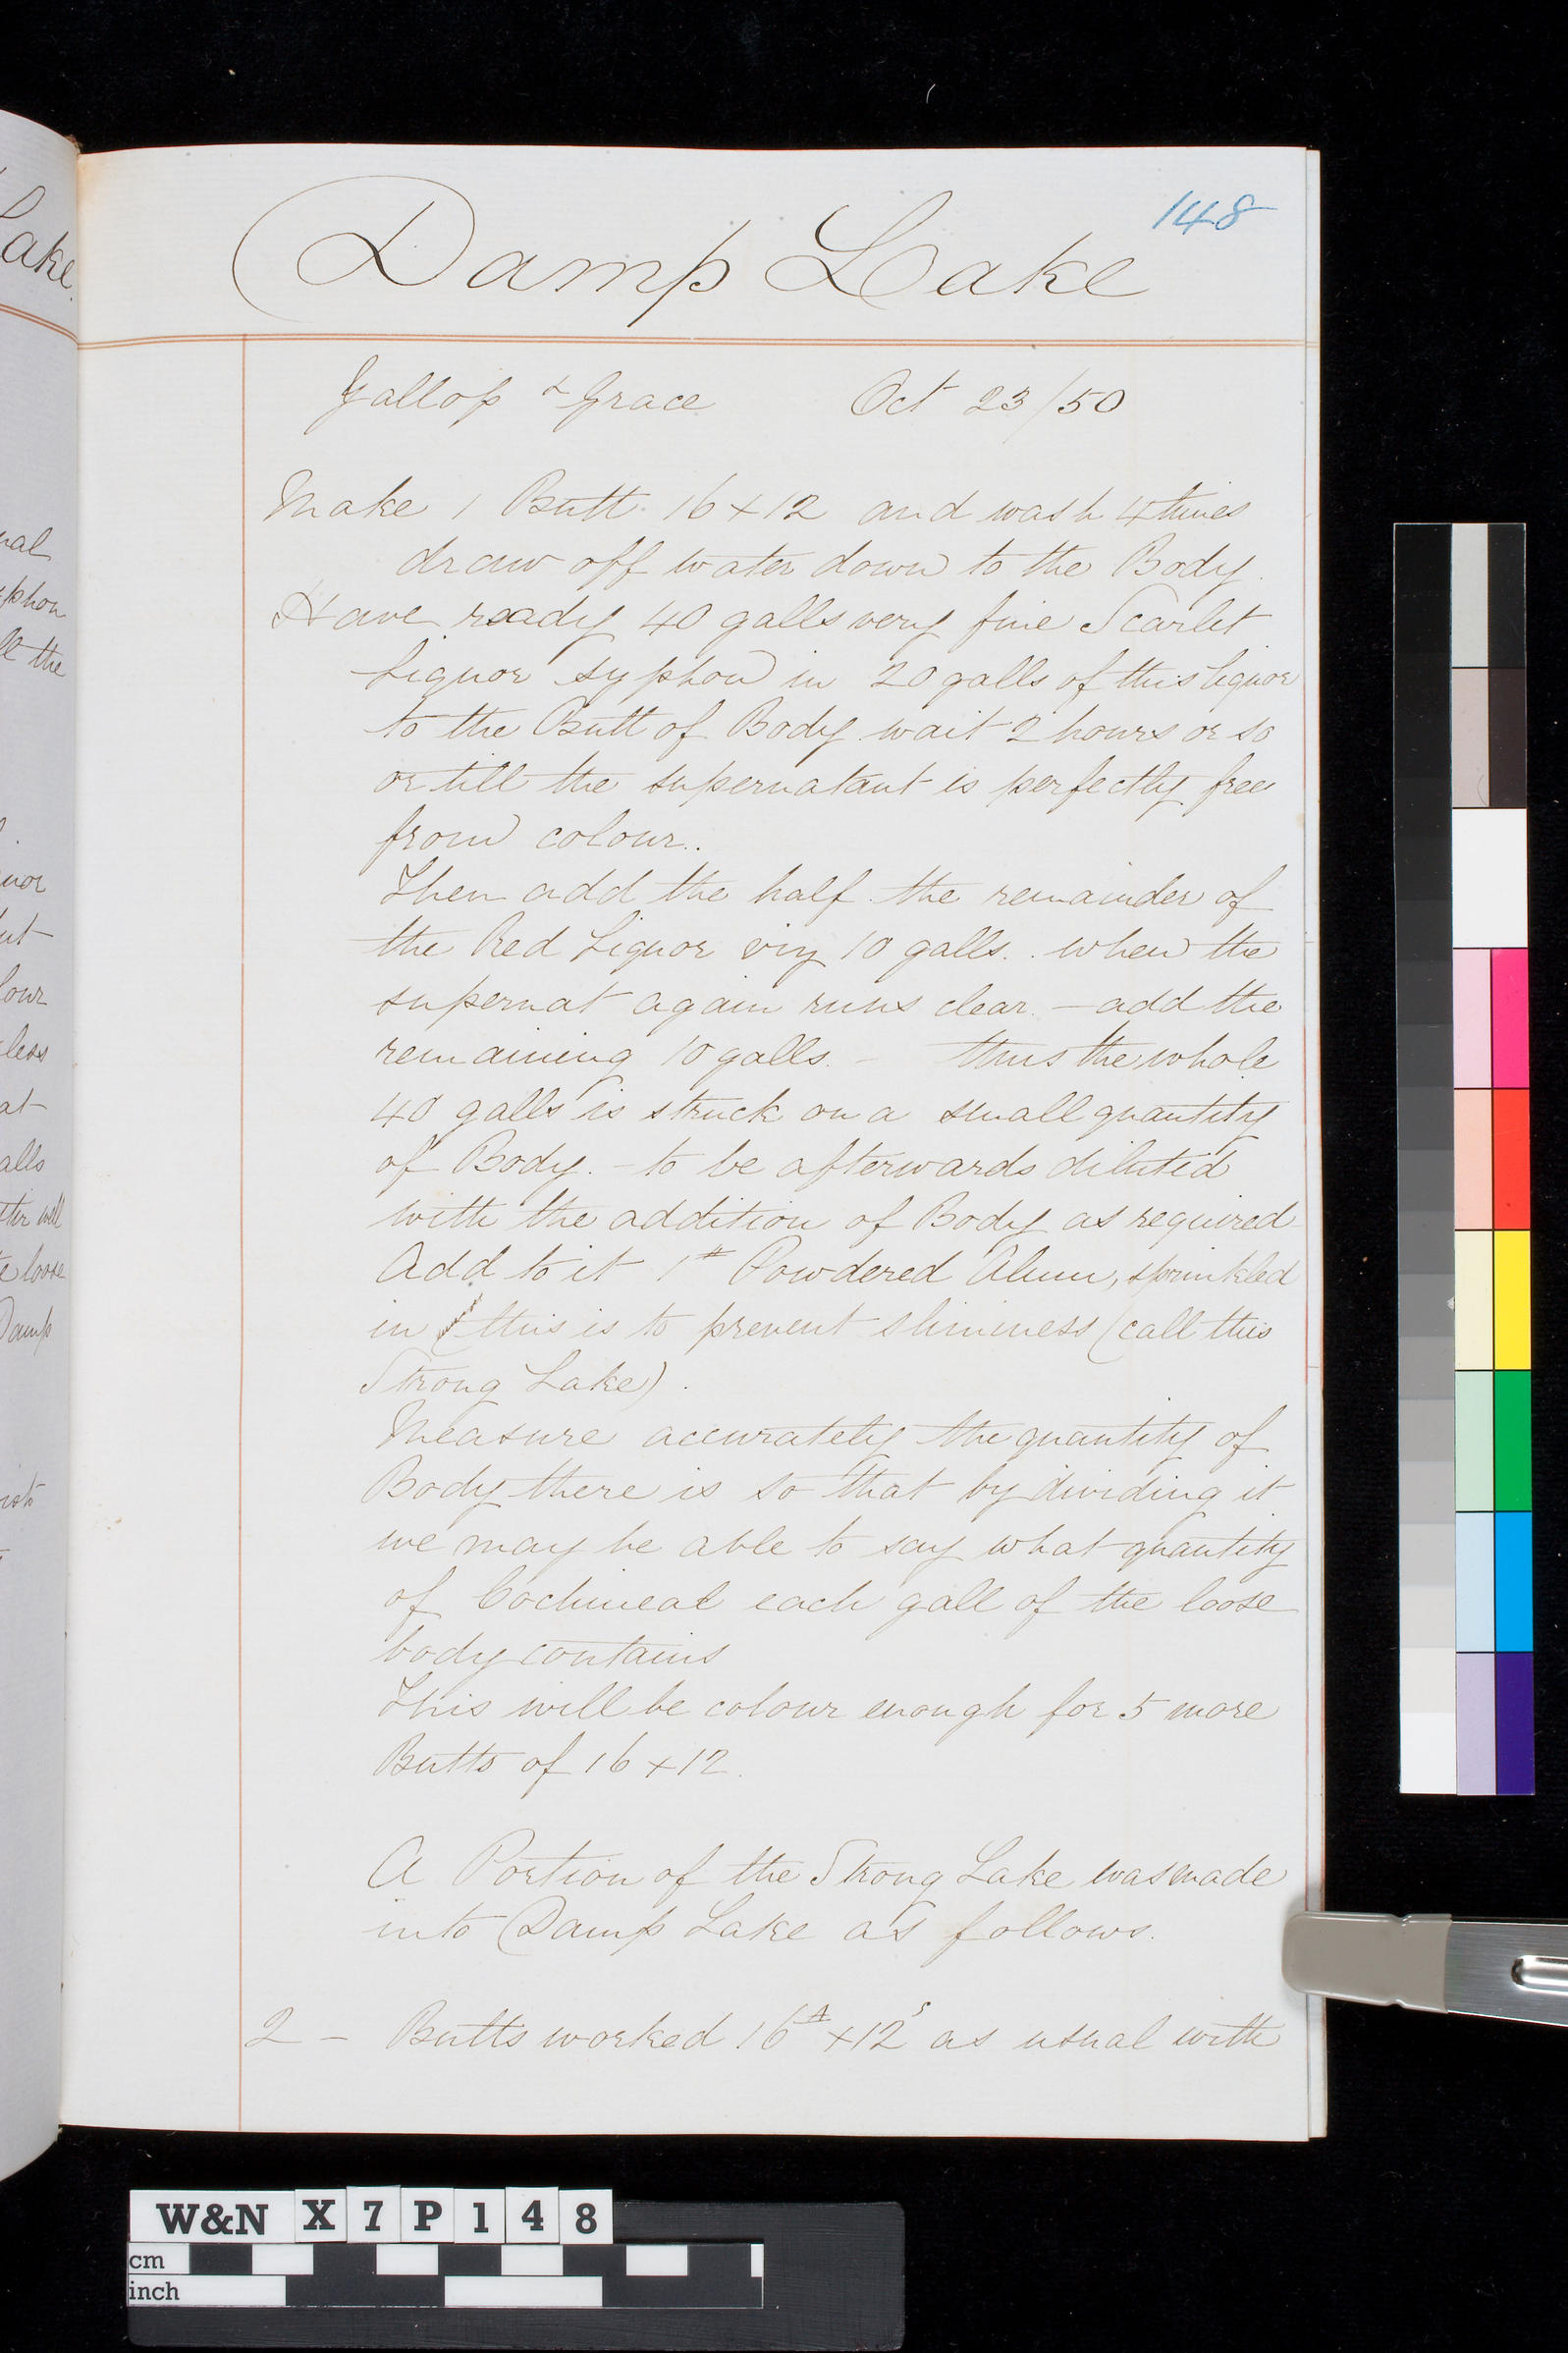 148
Damp Lake
Gallop & Grace Oct 23/50
Make 1 Butt 16 + 12 and wash 4 times
draw off water down to the Body.
Have ready 40 galls very fine Scarlet
Liquor syphon in 20 galls of this liquor
to the Butt of Body wait 2 hours or so
or till the supernatant is perfectly free
from colour..
Then add the half the remainder of
the Red Liquor viz 10 galls.. when the
supernat again runs clear. – add the
remaining 10 galls. – thus the whole
40 galls is struck on a small quantity
of Body. – to be afterwards diluted
with the addition of Body as required
Add to it 1 # Powdered Alum, sprinkled
in this is to prevent sliminess (call this
Strong Lake).
Measure accurately the quantity of
Body there is so that by dividing it
we may be able to say what quantity
of Cochineal each gall of the loose
body contains
This will be colour enough for 5 more
Butts of 16 + 12.
A Portion of the Strong Lake was made
into Damp Lake as follows.
2 – Butts worked 16# + 12s as usual with
ake
nal
phon
ll the
uor
ut
lour
less
at
alls
ter will
e loose
Damp
W&N X7P148
cm
inch